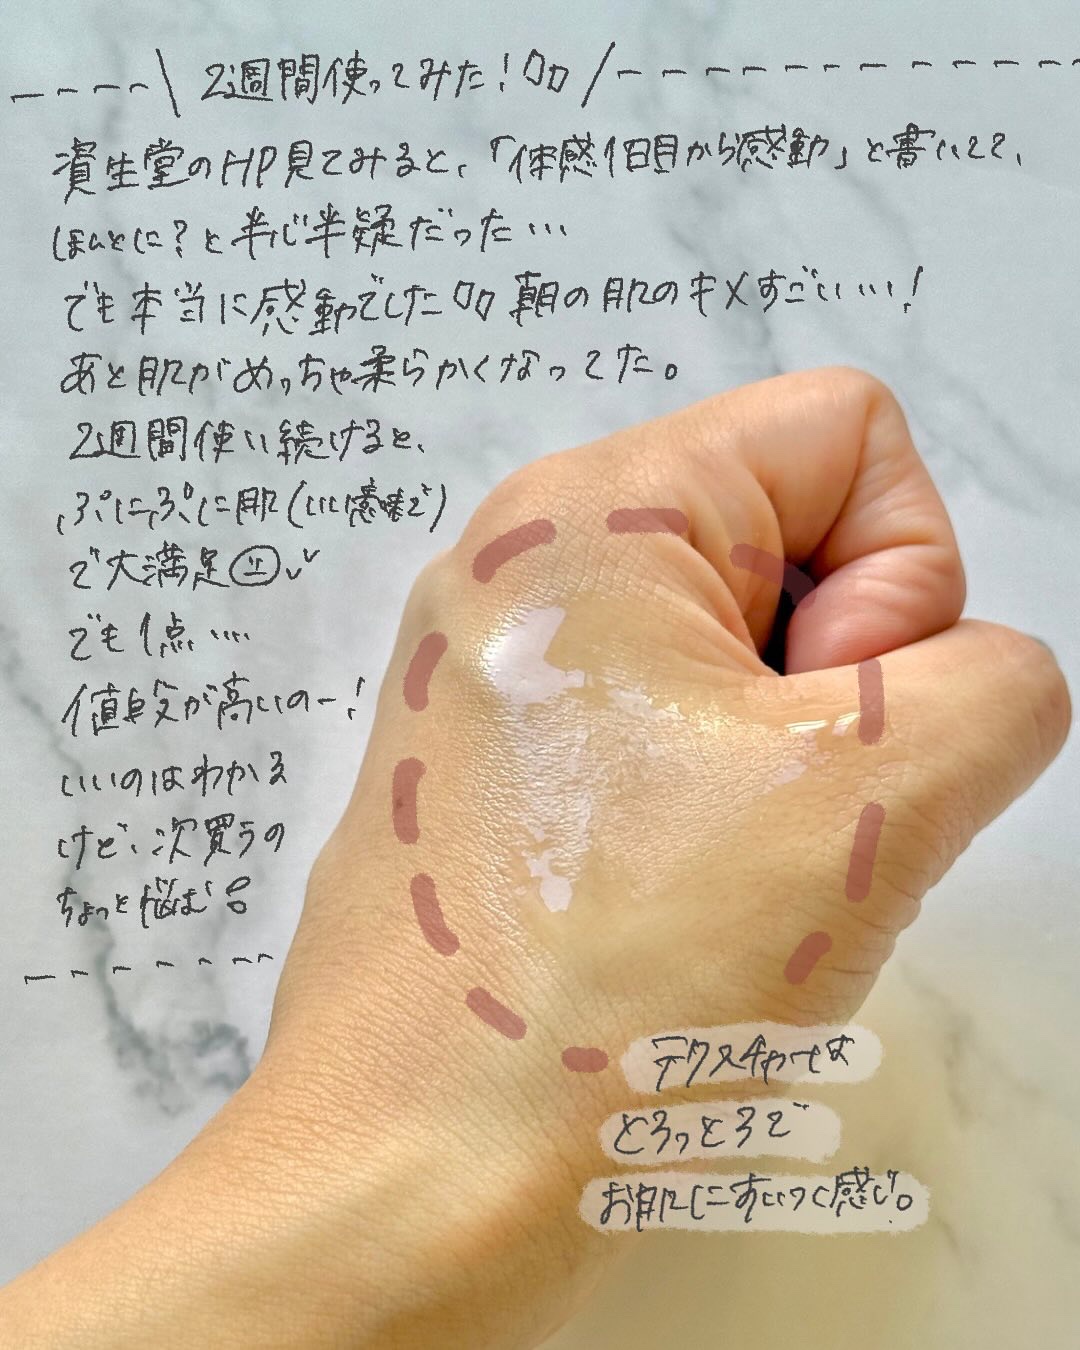 2週間使ってみた!
資生堂のHP見てみると、「体感1日目から感動」と書いてて、
ほんとに?と半心半疑だった…
でも本当に感動でした 朝の肌のキメすごいい…!
あと肌がめっちゃ柔らかくなってた。
2週間使い続けると、
ぷにぷに肌(いい意味で)
で大満足
でも1点….
値段が高いのー!
いいのはわかる
けど、次買うの
ちょっと悩む
テクスチャーは
とろっとろで
お肌にすいつく感じ。